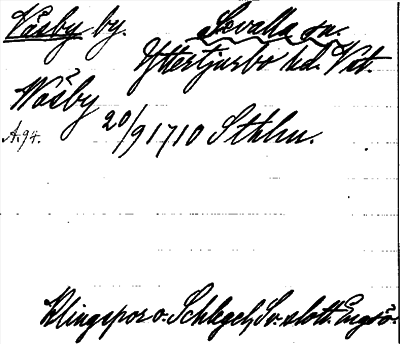 Väsby by. Sevalla sn.
Yttertjurbo hd. Vstm.
Wäsby 20/9 1710 Sthlm.
A.94.
Klingspor o. Schlegel, Sv. slott. Engsö.